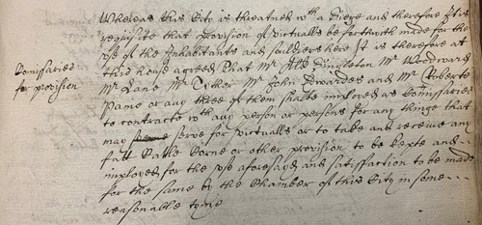 Whereas this City is threatned wth a Siege and therefore It is
requisite that provision of victualls be forthwith made for the
use of the Inhabitants and souldiers here It is therefore at
Comissaries
for provision
this house agreed That Mr Woodward
Mr Lane Mr Mr John Edwardes and Mr Roberte
Pame or any three of them shalbe imployed as Comissaries
to contracte wth any person or persons for any thinge that
may serve for victualls or to take and receive any
fatt Cattle Corne or other provision to be kepte and
imployed for the use aforesayd and satisfaction to be made
for the same by the Chamber of this City in some
reasonable tyme